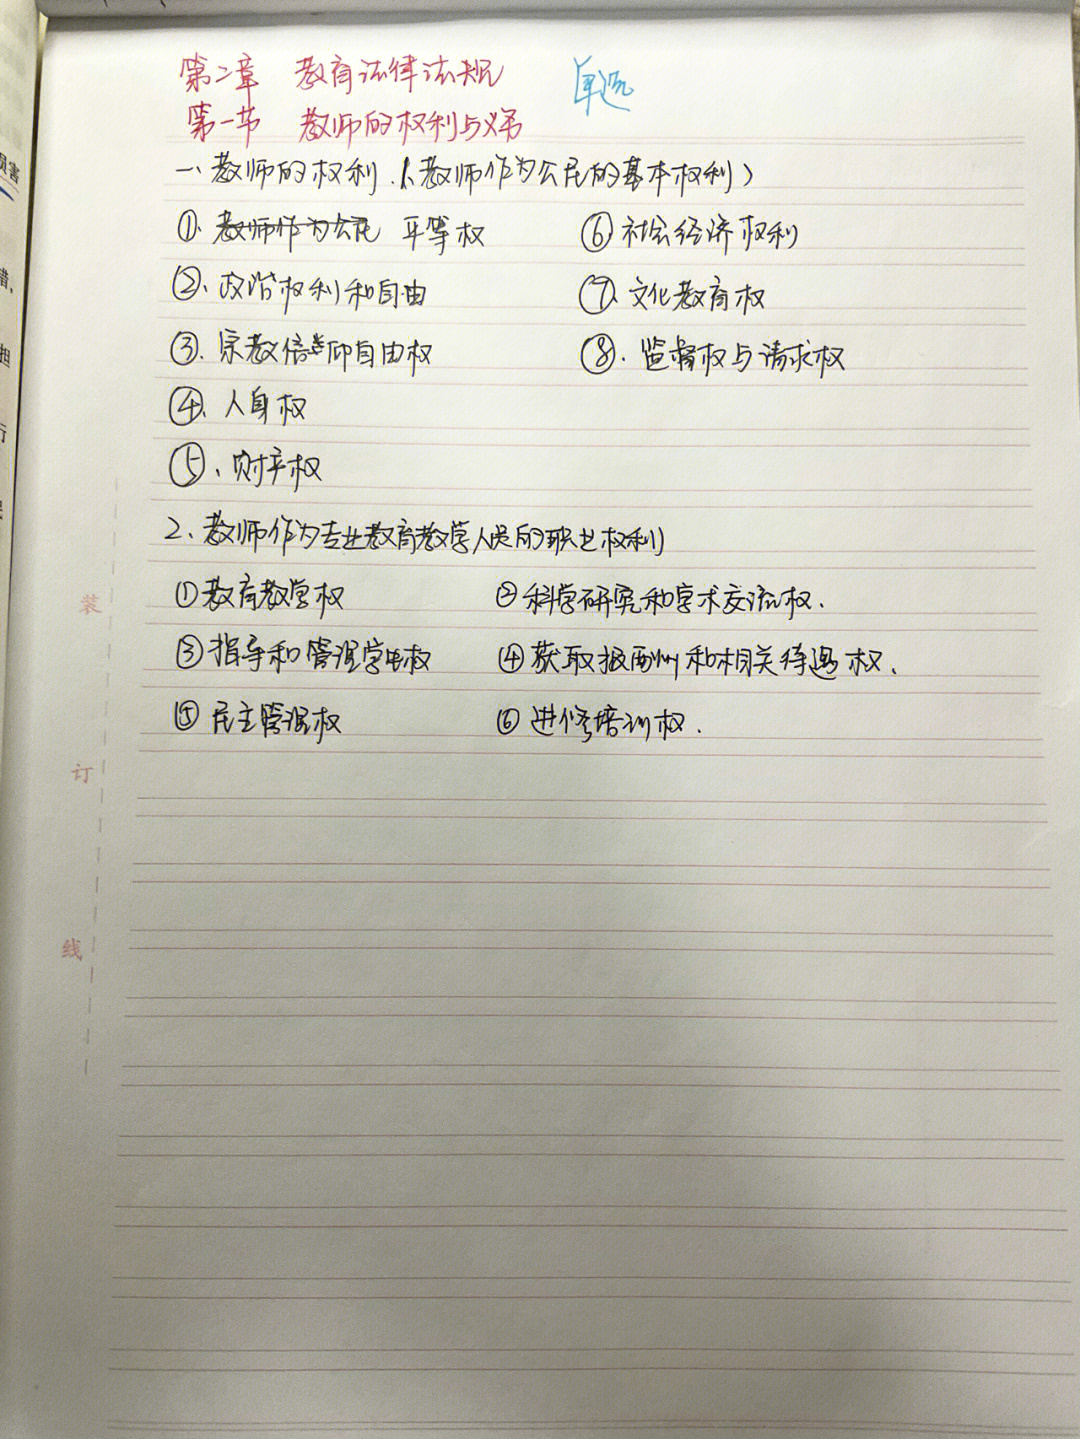 第二章 教育法律法规 单选
第一节 教师的权利与义务
一、教师的权利.(教师作为公民的基本权利)
①、教师作为公民 平等权 ⑥社会经济权利
②、政治权利和自由 ⑦、文化教育权
③、宗教信仰自由权 ⑧、监督权与请求权
④、人身权
⑤、财产权
2、教师作为专业教育教学人员的职业权利)
①教育教学权 ②科学研究和学术交流权.
③指导和管理学生权 ④获取报酬和相关待遇权、
⑤民主管理权 ⑥进修培训权.
装
订
线
损害
措,
担
行